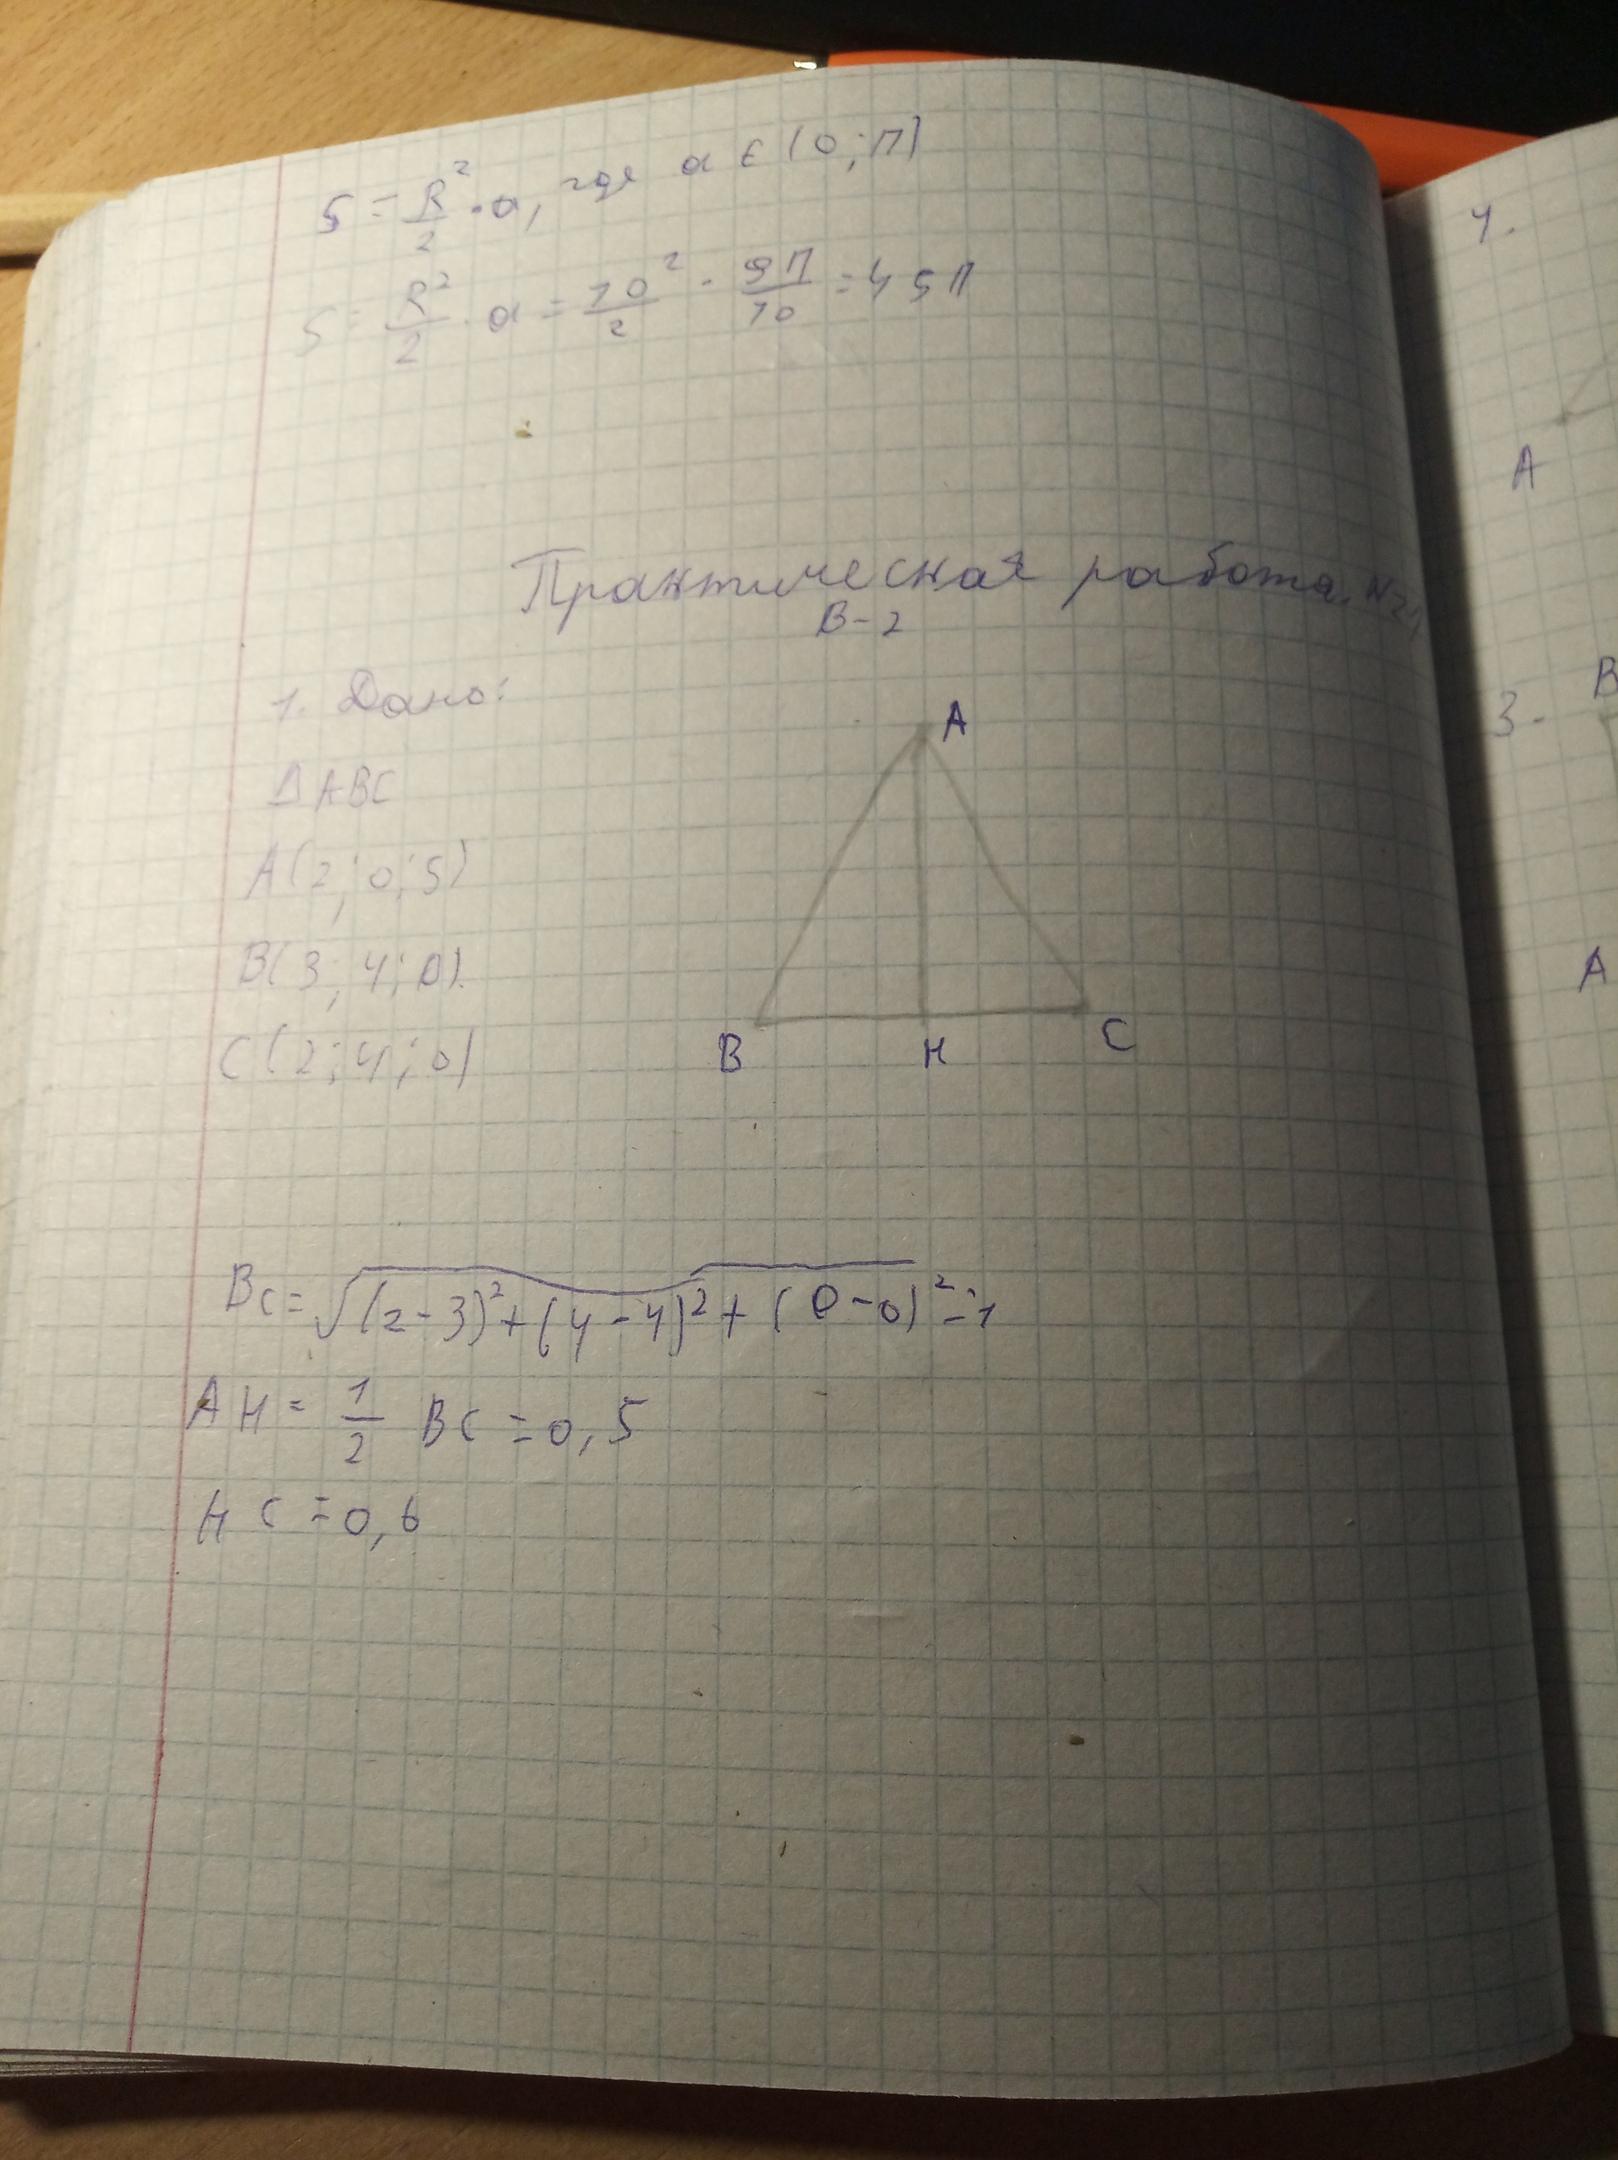 S = R²/2 · α, где α ∈ (0; П)
S = R²/2 · α = 10²/2 · 9П/10 = 45П
Практическая работа.
В-2
1. Дано:
ΔABC
A(2; 0; 5)
B(3; 4; 0).
C(2; 4; 0)
A
B
H
C
BC = √(2-3)²+(4-4)²+(0-0)² = 1
AH = 1/2 BC = 0,5
HC = 0,6
4.
A
3.
B
A